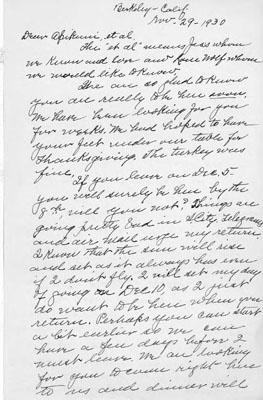 Berkeley - Calif
Nov. 29 - 1930
Dear et al.
The "et al" means Jess whom
we know and love and Lone Wolf whom
we would like to know.
We are so glad to know
you are really to be here soon.
We have been looking for you
for weeks. We had hoped to have
your feet under our table for
Thanksgiving. The turkey was
fine.
If you leave on Dec. 5
you will surely be here by the
8th, will you not? Things are
going pretty bad in S. City. Telegrams
and air mail urge my return.
I know that the sun will rise
and set as it always has even
if I don't fly. I will set my day
of going on Dec 10, as I just
do want to be here when you
return. Perhaps you can start
a bit earlier so we can
have a few days before I
must leave. We are looking
for you to come right here
to us and dinner will